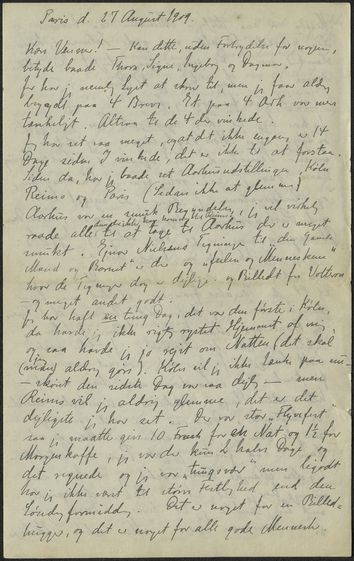 Paris d. 27 August 1909.
Kære Venner! — Kan dette, uden Fortrydelse for nogen,
betyde baade Thora, Signe, Ingeborg og Dagmar,
for har jeg nemlig Lyst at skrive til, men jeg faar aldrig
begyndt paa 4 Breve. Et paa 4 Ark var mere
tænkeligt. Altsaa til de 4 der vinkede.
Jeg har set saa meget, og at det ikke engang er 14
Dage siden I vinkede, det er ikke til at forstaa.
Siden da, har jeg baade set Aarhusudstillingen, Köln
Reims og Paris (Sedan ikke at glemme)
Aarhus var en smuk Begyndelse, jeg vil virkelig
raade alle til at tage til Aarhus der er meget
smukt. Ejnar Nielsens Tegninger til den Gamle
Mand og Barnet" er der og Menneskene
hvor de Tegninger dog er dejlige. og Billedet fra Volterra
— og meget andet godt.
Jeg har haft en tung Dag, det var den første i Köln,
da havde jeg ikke rigtig rystet Hjemmet af mig,
og saa havde jeg jo rejst om Natten (det skal
(man) aldrig gøre). Köln vil jeg ikke tænke paa
— skønt den sidste Dag var saa dejlig — men
Reims vil jeg aldrig glemme, det er det
dejligste jeg har set. Der var stor Flyvefest
saa jeg maatte give 10 Frank for en Nat og 1½ for
Morgenkaffe, jeg var der kun 2 halve Dage, og
det regnede og jeg var men ligegodt
har jeg ikke været til større Festlighed end den
Søndagformiddag. Det er noget for en Billed-
hugger, og det er noget for alle gode Mennesker.